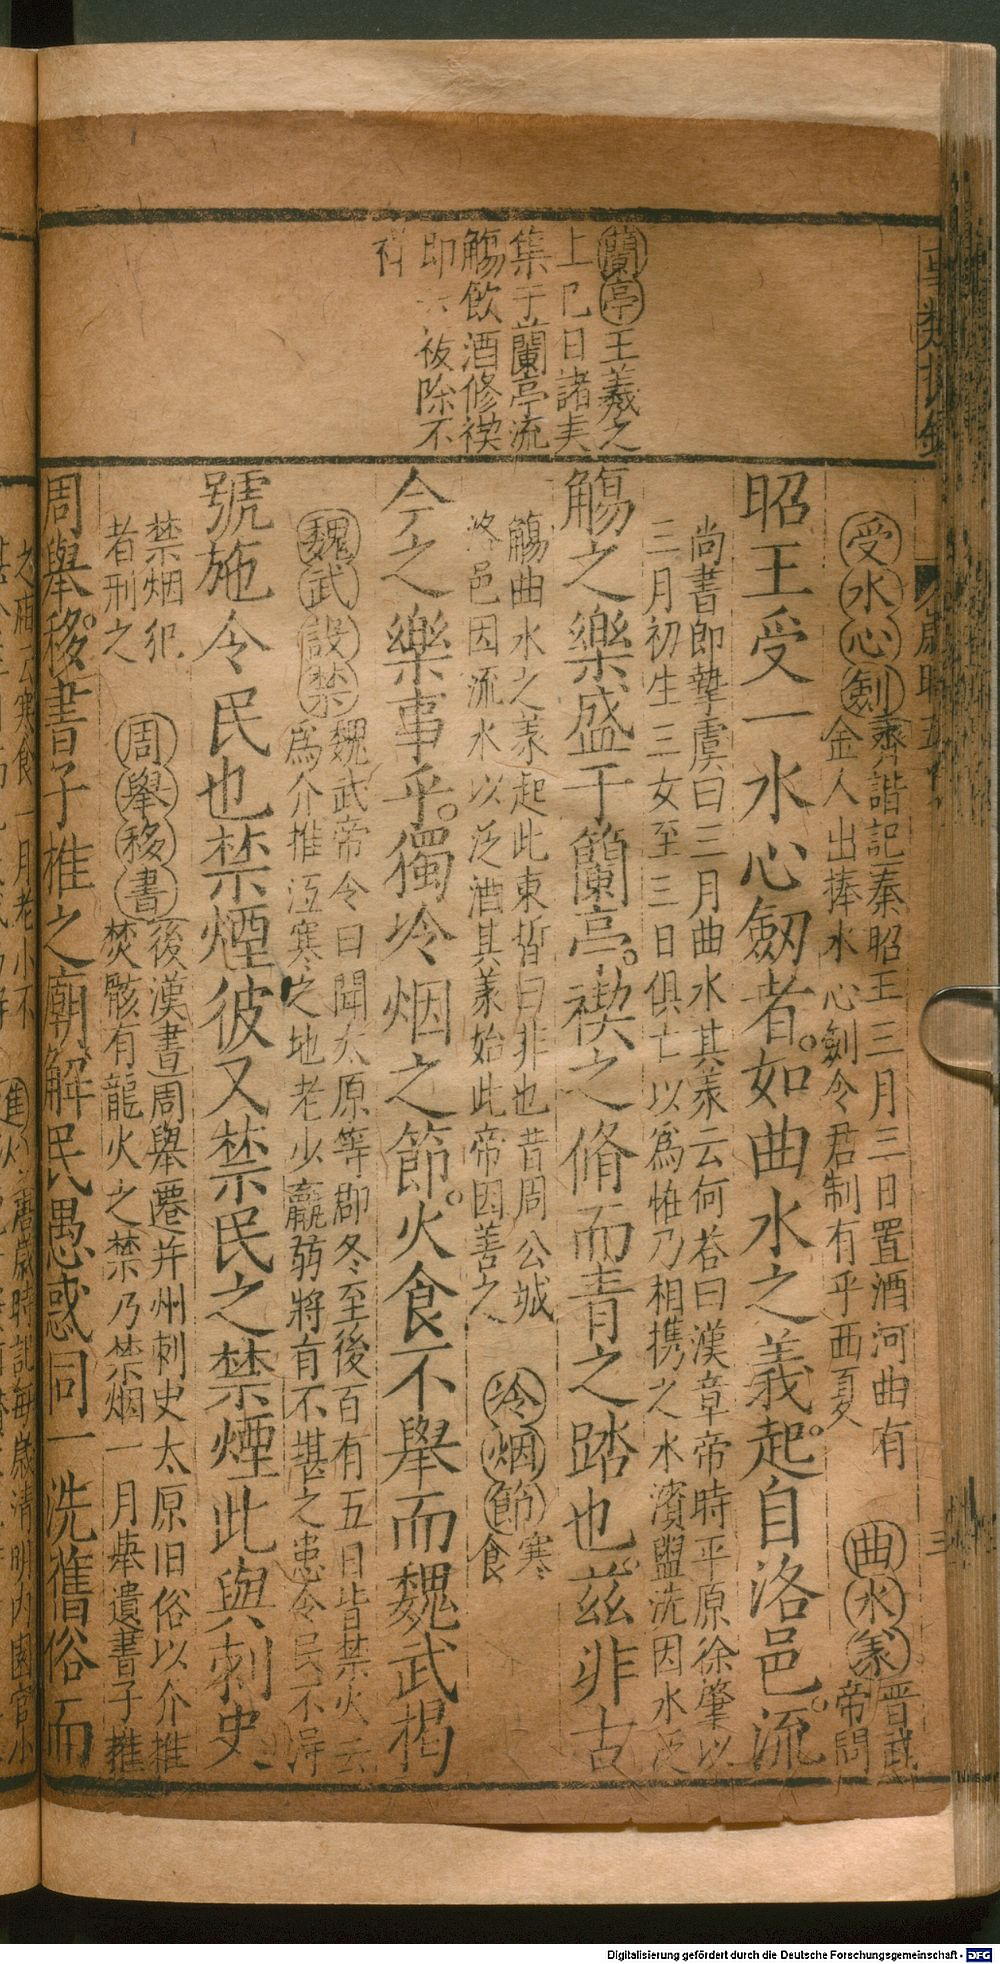 蘭亭王羲之
上巳日諸友
集于蘭亭流
觴飲酒修禊
即 祓除不
祥
受水心劍
齊諧記秦昭王三月三日置酒河曲有
金人出捧水心劍令君制有乎西夏
曲水䒾
晋武
帝問
昭王受一水心劒者如曲水之義起自洛邑流
尚書郎摯虞曰三月曲水其䒾云何荅曰漢章帝時平原徐肇以
三月初生三女至三日俱亡以爲恠乃相携之水濱盥洗因水泛
觴之樂盛于蘭亭禊之脩而青之踏也茲非古
觴曲水之䒾起此東晢曰非也昔周公城
洛邑因流水以泛酒其䒾始此帝因善之
冷烟節
寒
食
今之樂事乎獨冷烟之節火食不舉而魏武揭
魏武設禁
魏武帝令曰聞太原等郡冬至後百有五日皆禁火云
爲介推沍寒之地老少羸弱將有不堪之患令民不淂
號施令民也禁煙彼又禁民之禁煙此與刺史
禁烟犯
者刑之
周舉移書
後漢書周舉遷并州刺史太原旧俗以介推
焚骸有龍火之禁乃禁烟一月舉遺書子推
周舉移書子推之廟解民愚惑同一洗舊俗而
三
Digitalisierung gefördert durch die Deutsche Forschungsgemeinschaft - DFG